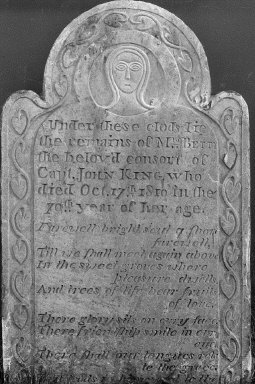 Under these clods lie
the remains of Mrs
the belov'd consort of
Capt. JOHN KING, who
died Oct. 17th 1810 In the
70th year of her age.
Farewell bright soul a short
farewell,
Till we shall meet again above
In the sweet groves where
pleasure dwells
And trees of life bear fruits
of love.
There glory sits on every face,
There friendship smile in every
eye
There shall our tongues relate
the grace